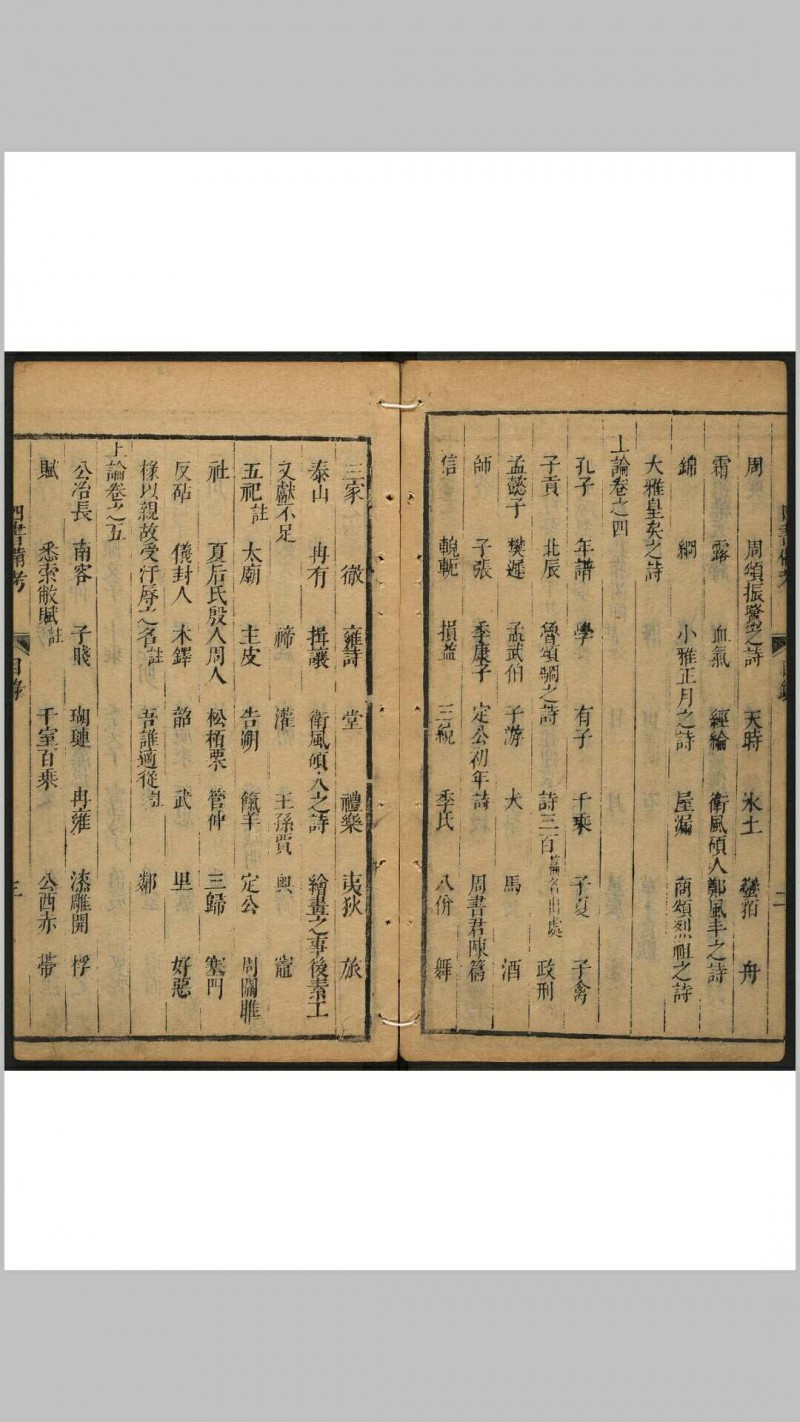 周 周頌振鷺之詩 天時 水土 舟
霜 露 血氣 經綸 衛風碩人鄭風丰之詩
錦 綱 小雅正月之詩 屋漏 商頌烈祖之詩
大雅皇矣之詩
上論卷之四
孔子 年譜 學 有子 千乘 子夏 子禽
子貢 北辰 魯頌駉之詩 詩三百篇名出處 政刑
孟懿子 樊遲 孟武伯 子游 犬 馬 酒
師 子張 季康子 定公初年 詩 周書君陳篇
信 輗軏 損益 三統 季氏 八佾 舞
三家 徹 雍詩 堂 禮樂 夷狄 旅
泰山 冉有 揖讓 衛風碩人之詩 繪畫之事後素工
文獻不足 禘 灌 王孫賈 奧 竈
五祀註 太廟 主皮 告朔 餼羊 定公 周關雎
社 夏后氏殷人周人 松栢栗 管仲 三歸 塞門
反坫 儀封人 木鐸 韶 武 里 好惡
以親故受汙辱之名註 吾誰適從註 鄰
上論卷之五
公冶長 南容 子賤 瑚璉 冉雍 漆雕開 桴
賦 悉索敝賦註 千室百乘 公西赤 帶
四書備考 目錄 三